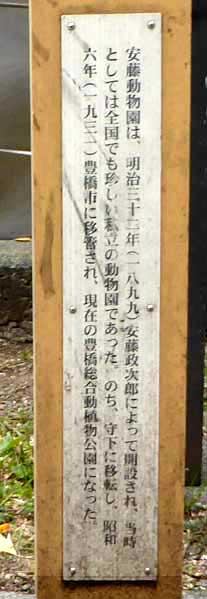 安藤動物園は、明治三十二年(一八九九)安藤政次郎によって開設され、当時
としては全国でも珍しい私立の動物園であった。のち、守下に移転し、昭和
六年(一九三一)豊橋市に移審され、現在の豊橋総合動植物公園になった。